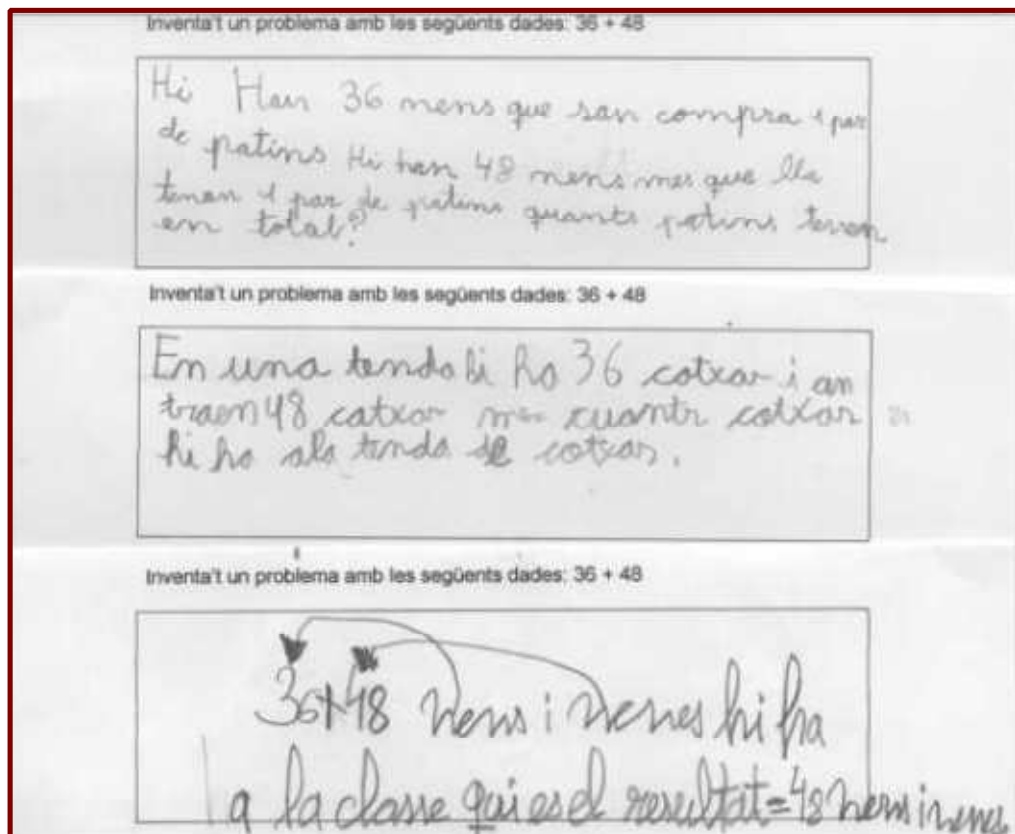 Inventa't un problema amb les següents dades: 36 + 48
Hi Han 36 nens que san compra 1 par
de patins Hi han 48 nens mes que lla
tenen 1 par de patins quants patins tenen
en total?
Inventa't un problema amb les següents dades: 36 + 48
En una tenda hi ha 36 cotxar i an
traen 48 catxar mes cuantr cotxar
hi ha ala tenda de cotxar.
Inventa't un problema amb les següents dades: 36 + 48
36+48 nens i nenes hi ha
a la classe qui es el resultat=48 nens i nenes